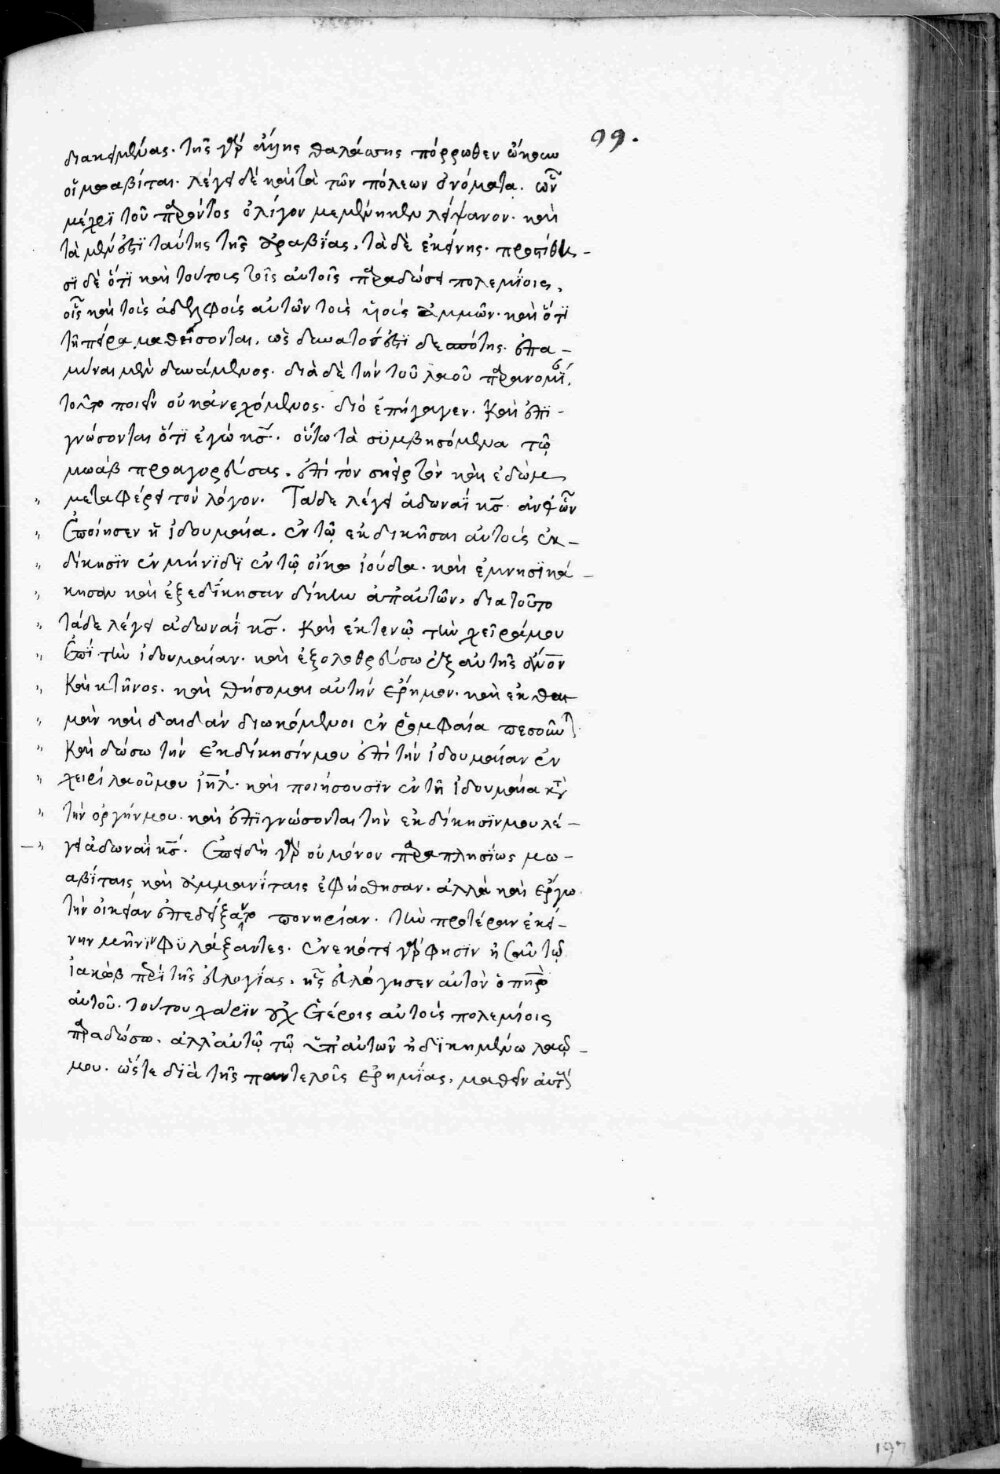 99.
διακειμένας. τῆς γὰρ ἄλλης θαλάσσης πόρρωθεν ὤκουν
οἱ μωαβίται. λέγει δὲ καὶ τὰ τῶν πόλεων ὀνόματα. ὧν
μέχρι τοῦ παρόντος ὀλίγον μεμένηκεν λείψανον. καὶ
τὰ μὲν ἐστὶ ταύτης τῆς ἀραβίας, τὰ δὲ ἐκείνης. προστίθη-
σι δὲ ὅτι καὶ τούτους τοῖς αὐτοῖς παραδώσει πολεμίοις,
οἷς καὶ τοὺς ἀδελφοὺς αὐτῶν τοὺς υἱοὺς ἀμμών. καὶ ὅτι
τῇ πείρᾳ μαθήσονται, ὡς δυνατός ἐστι δεσπότης. ἐπα-
μῦναι μὲν δυνάμενος. διὰ δὲ τὴν τοῦ λαοῦ παρανομίαν,
τοῦτο ποιεῖν οὐκ ἀνεχόμενος. διὸ ἐπήγαγεν. καὶ ἐπι-
γνώσονται ὅτι ἐγὼ κς. οὕτω τὰ συμβησόμενα τῷ
μωὰβ προαγορεύσας, ἐπὶ τὸν σηεὶρ τὸν καὶ ἐδὼμ
μεταφέρει τὸν λόγον. Τάδε λέγει ἀδωναῒ κς ἀνθ ὧν
ἐποίησεν ἡ ἰδουμαία. ἐν τῷ ἐκδικῆσαι αὐτοὺς ἐκ-
δίκησιν ἐν μήνιδι ἐν τῷ οἴκω ἰούδα. καὶ ἐμνησικά-
κησαν καὶ ἐξεδίκησαν δίκην ἀπ αὐτῶν, διατοῦτο
τάδε λέγει ἀδωναῒ κς. Καὶ ἐκτενῶ τὴν χεῖρά μου
ἐπὶ τὴν ἰδουμαίαν. καὶ ἐξολοθρεύσω ἐξ αὐτῆς ἄνον
καὶ κτῆνος. καὶ θήσομαι αὐτὴν ἔρημον. καὶ ἐκ θαι
μὰν καὶ δαιδὰν διωκόμενοι ἐν ῥομφαία πεσοῦνται
καὶ δώσω τὴν ἐκδίκησίν μου ἐπὶ τὴν ἰδουμαίαν ἐν
χειρὶ λαοῦ μου ἰηλ. καὶ ποιήσουσιν ἐν τῇ ἰδουμαία κατὰ
τὴν ὀργήν μου. καὶ ἐπιγνώσονται τὴν ἐκδίκησίν μου λέ-
γει ἀδωναῒ κς. Ἐπειδὴ γὰρ οὐ μόνον παραπλησίως μω-
αβίταις καὶ ἀμμανίταις ἐφήσθησαν. ἀλλὰ καὶ ἔργω
τὴν οἰκείαν ἐπεδείξαντο πονηρίαν. τὴν προτέραν ἐκεί-
νην μῆνιν φυλάξαντες. ἐνεκότει γὰρ φησὶν ἠσαῦ τῷ
ἰακὼβ περὶ τῆς εὐλογίας, ἧς εὐλόγησεν αὐτὸν ὁ πηρ
αὐτοῦ. τούτου χάριν οὐχ ἑτέροις αὐτοὺς πολεμίοις
παραδώσω. ἀλλ αὐτῷ τῷ ὑπ αὐτῶν ἠδικημένω λαῷ
μου. ὥστε διὰ τῆς παντελοῦς ἐρημίας, μαθεῖν αὐτοὺς
197